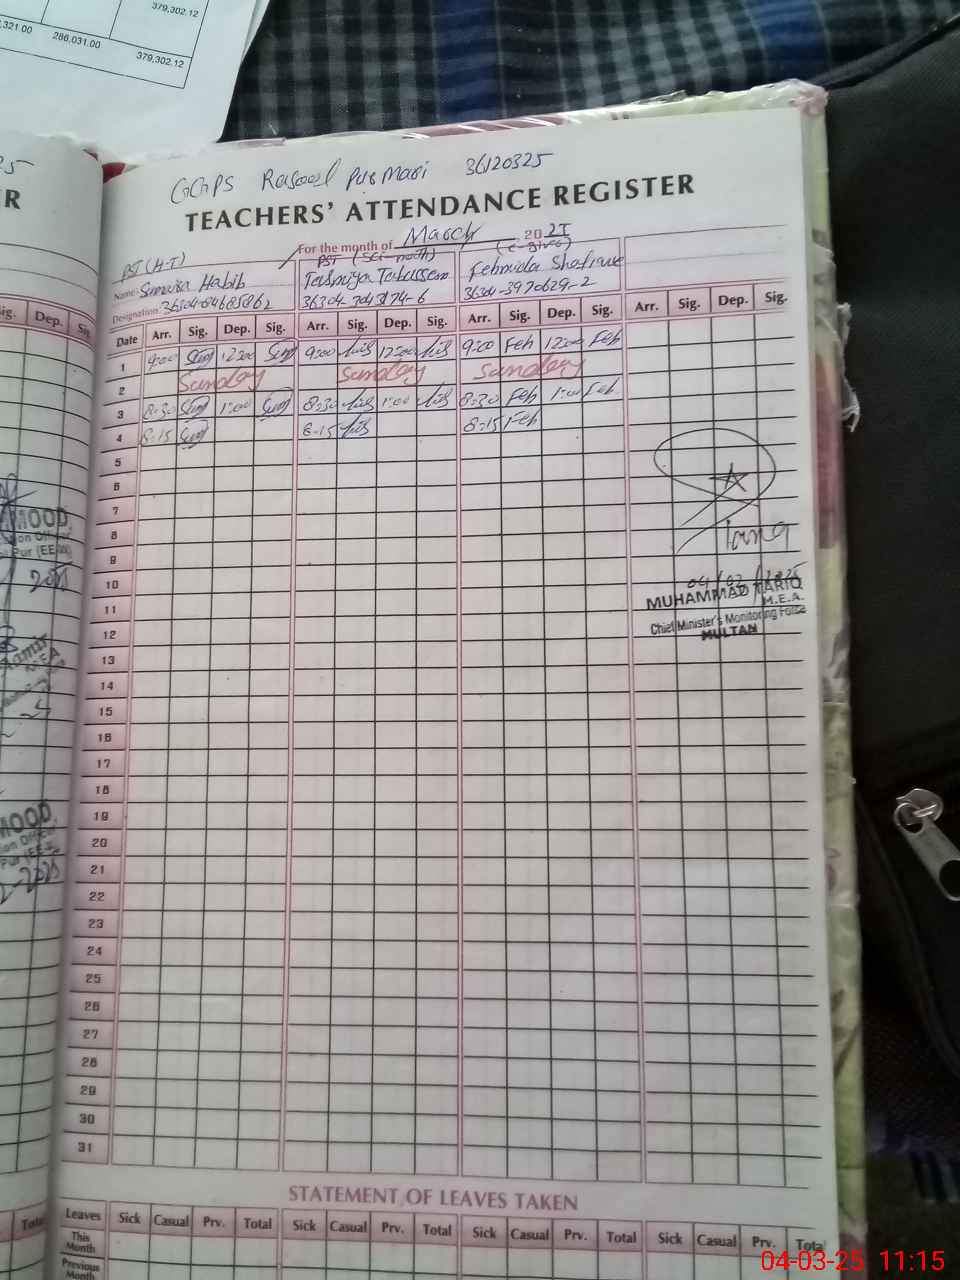 379,302.12
,321.00 286,031.00 379,302.12
GGPS Rasool Pur Mari 36120325
TEACHERS' ATTENDANCE REGISTER
For the month of March 20 25
PST (H-T) PST (Sci-math)
Name: Sumaira Habib Tasmiya Tabassem Fehmida Shafique
Designation:
Date Arr. Sig. Dep. Sig. Arr. Sig. Dep. Sig. Arr. Sig. Dep. Sig. Arr. Sig. Dep. Sig.
1 9:00 12:00 9:00 12:00 9:00 Feh 12:00 Feh
2 Sunday Sunday Sunday
3 8:30 1:00 8:30 1:00 8:30 Feh 1:00 Feh
4 8:15 8:15 8:15 Feh
5
6
7
8
9
10
11
12
13
14
15
16
17
18
19
20
21
22
23
24
25
26
27
28
29
30
31
04/03/2025
MUHAMMAD TARIQ
M.E.A.
Chief Minister's Monitoring Force
MULTAN
STATEMENT OF LEAVES TAKEN
Leaves Sick Casual Prv. Total Sick Casual Prv. Total Sick Casual Prv. Total Sick Casual Prv. Total
This Month
Previous Month
04-03-25 11:15